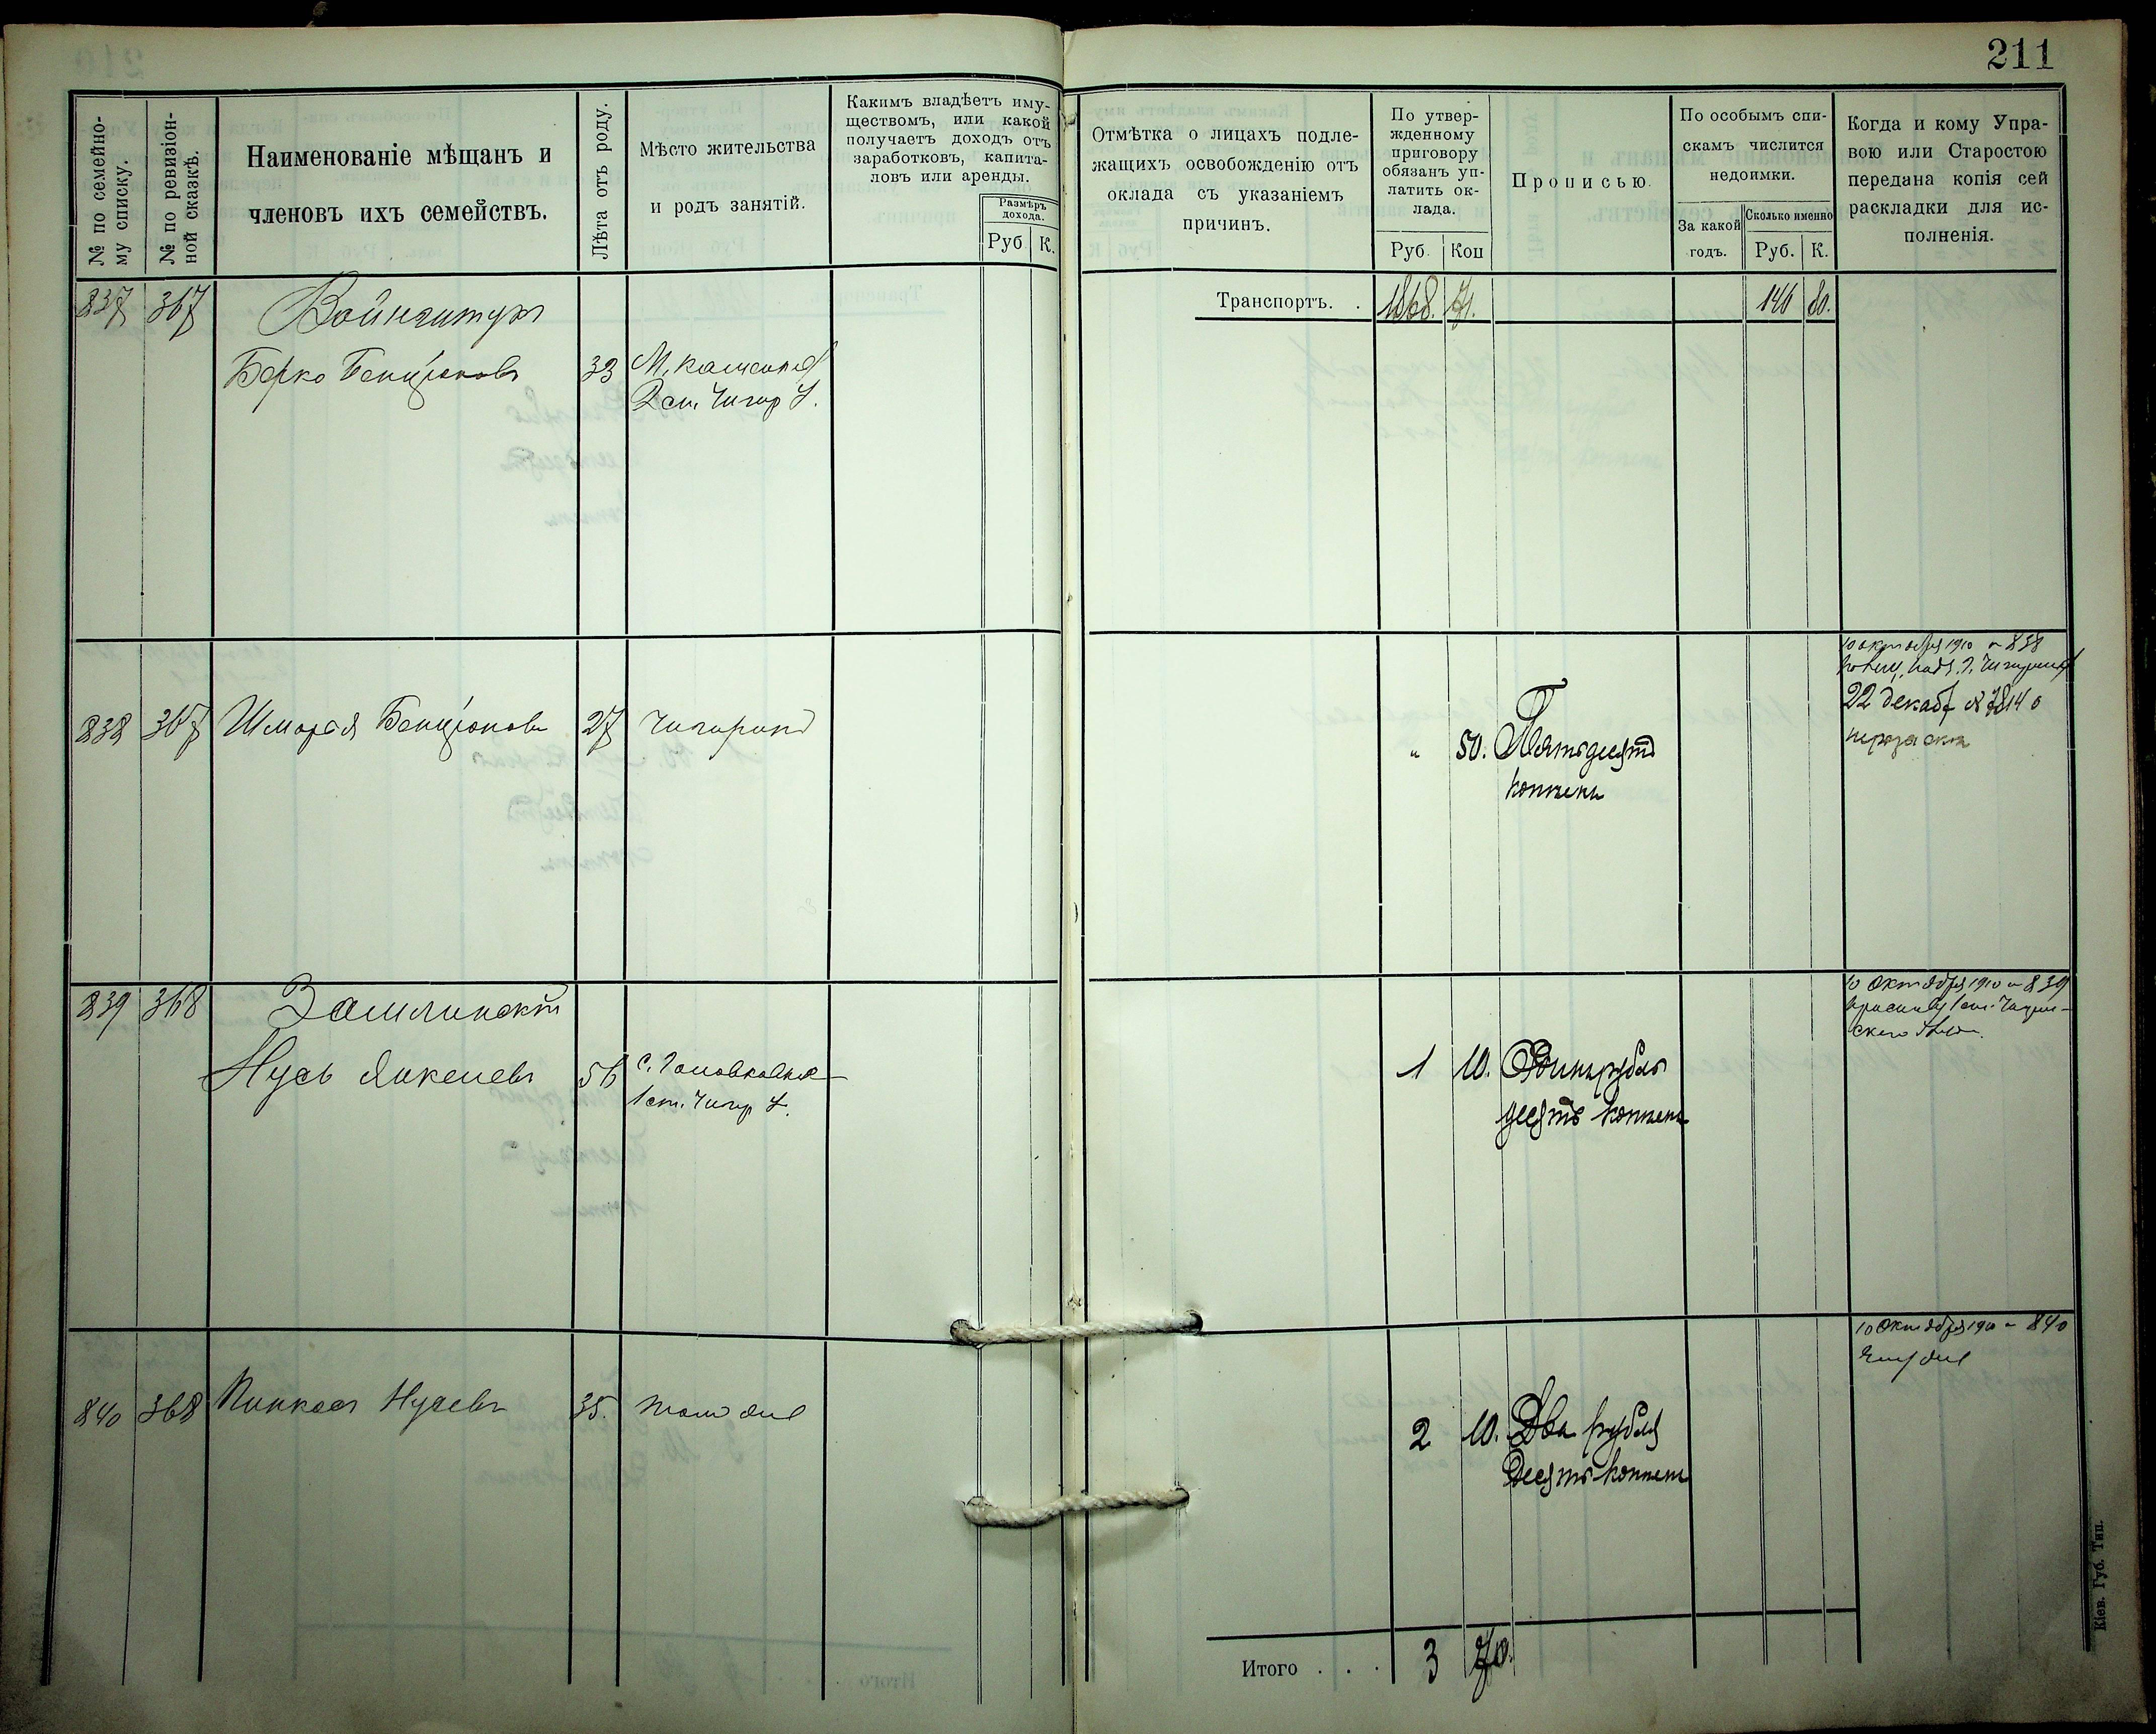 211
№ по семейно-
му списку.
№ по ревизіон-
ной сказкѣ.
Наименованіе мѣщанъ и
членовъ ихъ семействъ.
Лѣта отъ роду.
Мѣсто жительства
и родъ занятій.
Какимъ владѣетъ иму-
ществомъ, или какой
получаетъ доходъ отъ
заработковъ, капита-
ловъ или аренды.
Размѣръ
дохода.
Руб. К.
Отмѣтка о лицахъ подле-
жащихъ освобожденію отъ
оклада съ указаніемъ
причинъ.
По утвер-
жденному
приговору
обязанъ уп-
латить ок-
лада.
Руб. Коп
Прописью.
По особымъ спи-
скамъ числится
недоимки.
За какой
годъ.
Сколько именно
Руб. К.
Когда и кому Упра-
вою или Старостою
передана копія сей
раскладки для ис-
полненія.
837 367
Транспортъ. . 1868. 71. 146 80.
Берко Бенціоновъ 33 М. Каменка
2 ст. Чигир У.
10 октября 1910 № 838
Чигиринъ
838 367 Шмарая Бенціоновъ 27 Чигиринъ " 50. Пятьдесятъ
копѣекъ
22 декаб №
839 368 Замлинскій
10 Октября 1910 № 839
1 ст. Чигирин-
скаго
Нусь Янкелевъ 56 с. Головковка
1 ст. Чигир У.
1 10. Одинъ рубль
десять копѣекъ
10 Октября 1910 № 840
840 368 Пинхас Нусевъ 35. тоже 2 10. Два рубля
Десять копѣекъ
Итого . . . 3 70.
Кіев. Губ. Тип.